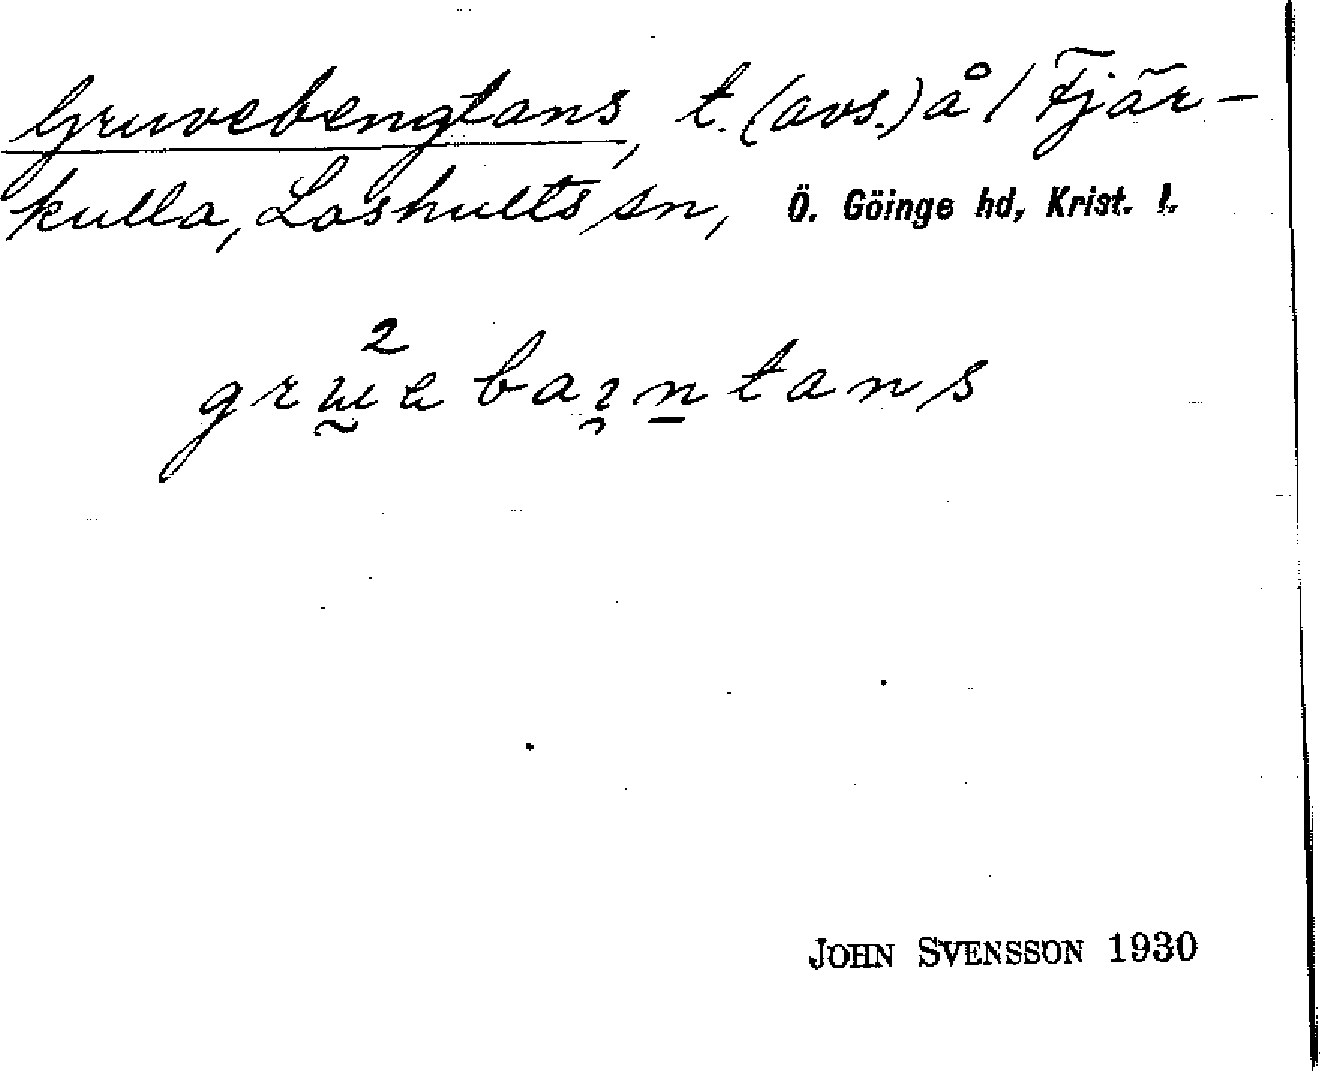 Gruvebengtans, t. (avs.) å 1 Fjär-
kulla, Loshults sn, Ö. Göinge hd, Krist. l.
2
JOHN SVENSSON 1930